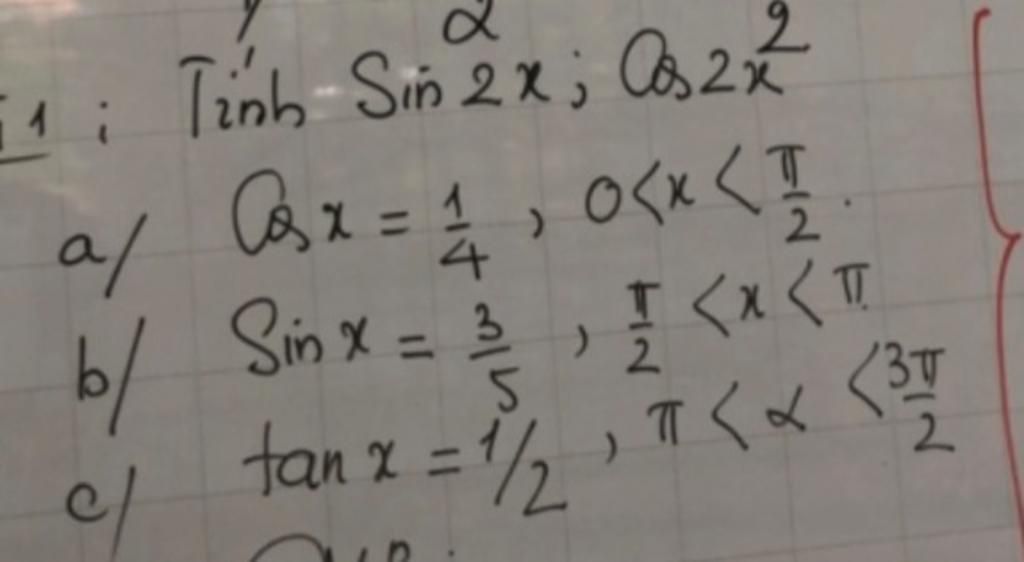 1 : Tính Sin 2x ; Cos 2x
a/ Cos x = 1/4 , 0 < x < π/2 .
b/ Sin x = 3/5 , π/2 < x < π
c/ tan x = 1/2 , π < α < 3π/2